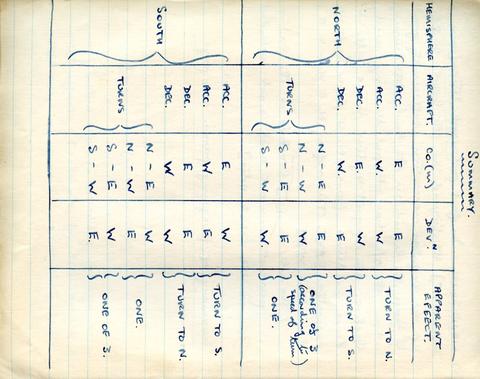 SUMMARY.
HEMISPHERE AIRCRAFT. CO.(M) DEVN. APPARENT EFFECT.
ACC. E E TURN TO N.
ACC. W W
DEC. E W TURN TO S.
DEC. W. E
NORTH TURNS
N - E E ONE OF 3
N - W W (according to speed of turn)
S - E E ONE.
S - W W.
ACC. E W TURN TO S.
ACC. W E
DEC. E E TURN TO N.
DEC. W W
SOUTH TURNS
N - E W ONE.
N - W E
S - E W ONE OF 3.
S - W E.